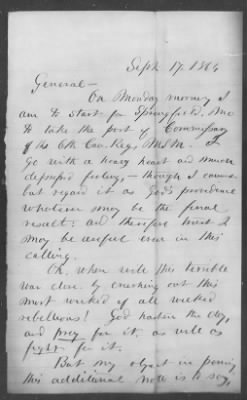 Sept. 17. 1864
General —
On Monday morning I
am to start for Springfield, Mo
to take the post of Commissary
of the 6th Cav. Reg. M.S.M. I
go with a heavy heart and much
depressed feeling, — though I
but regard it as God's providence
whatever may be the final
result; and therefore trust I
may be useful even in this
calling.
Oh, when will this terrible
war close by crushing out this
most wicked of all wicked
rebellions! God hasten the day,
and pray for it, as well as
fight for it.
But my object in penning
this additional note is to say,